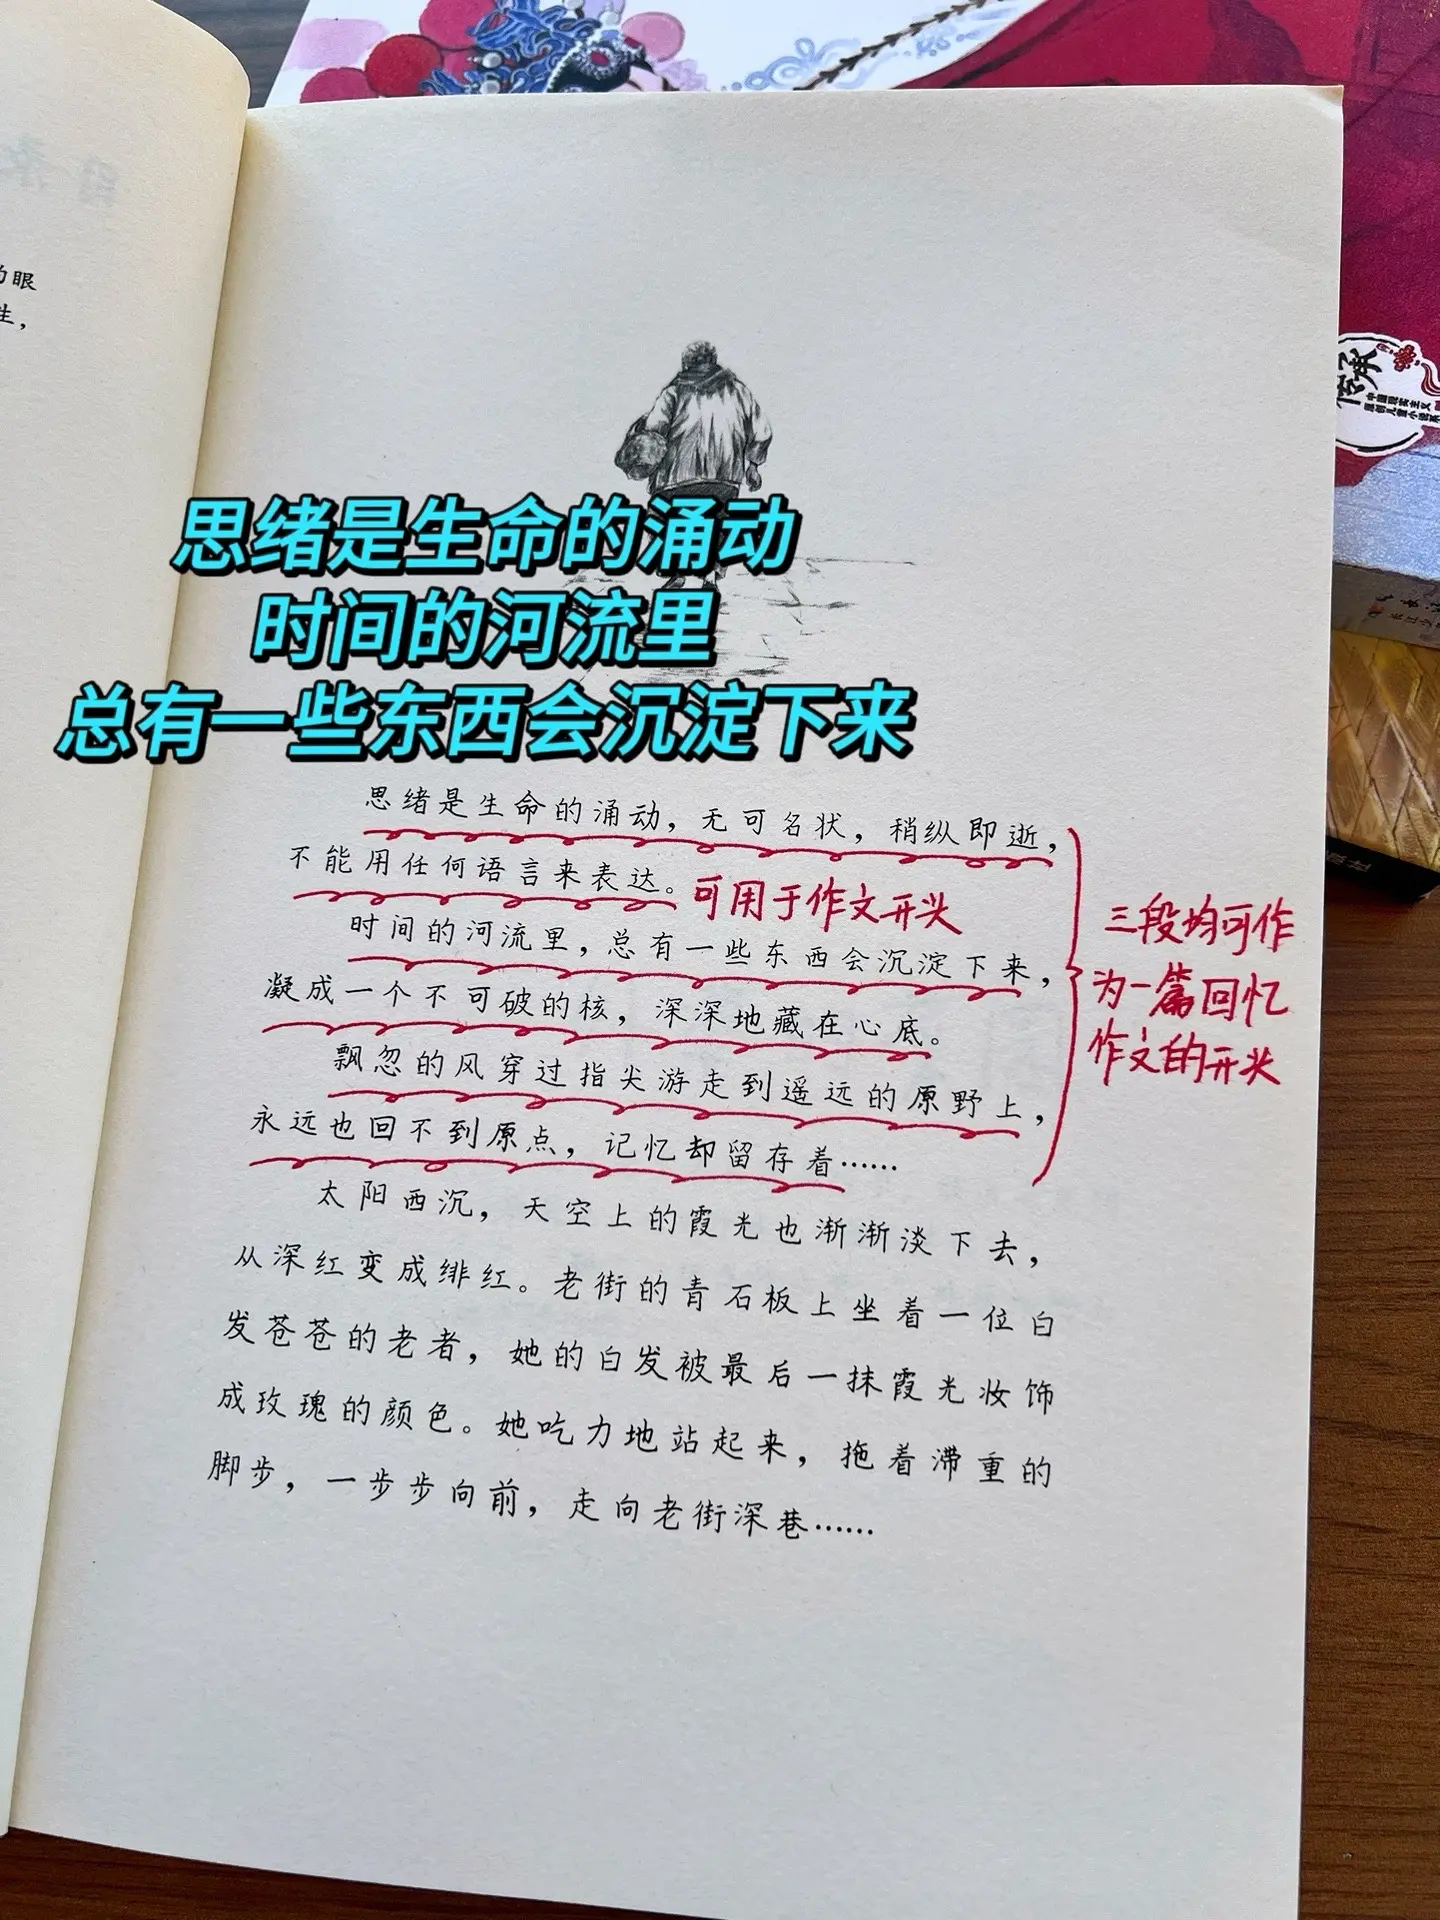 的眼
生，
思绪是生命的涌动
时间的河流里
总有一些东西会沉淀下来
思绪是生命的涌动，无可名状，稍纵即逝，
不能用任何语言来表达。
可用于作文开头
时间的河流里，总有一些东西会沉淀下来，
凝成一个不可破的核，深深地藏在心底。
飘忽的风穿过指尖游走到遥远的原野上，
永远也回不到原点，记忆却留存着……
三段均可作
为一篇回忆
作文的开头
太阳西沉，天空上的霞光也渐渐淡下去，
从深红变成绯红。老街的青石板上坐着一位白
发苍苍的老者，她的白发被最后一抹霞光妆饰
成玫瑰的颜色。她吃力地站起来，拖着滞重的
脚步，一步步向前，走向老街深巷……
传承
中国现实主义
原创儿童小说系